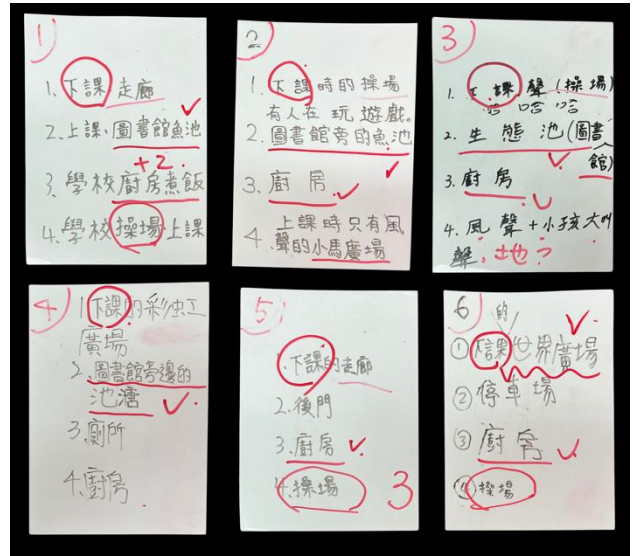 1
1. 下課走廊
2. 上課、圖書館魚池
+2.
3. 學校廚房煮飯
4. 學校操場上課
2
1. 下課時的操場
有人在玩遊戲。
2. 圖書館旁的魚池
3. 廚房
4. 上課時只有風
聲的小馬廣場
3
1. 下課聲(操場)
哈哈哈
2. 生態池(圖書
館)
3. 廚房
4. 風聲+小孩大叫
聲. 土也?
4
1 下課的彩虹
廣場
2. 圖書館旁邊的
池溏
3. 廁所
4. 廚房
5
1. 下課的走廊
2. 後門
3. 廚房
4. 操場
3
6
的
① 下課世界廣場
② 停車場
③ 廚房
④ 操場